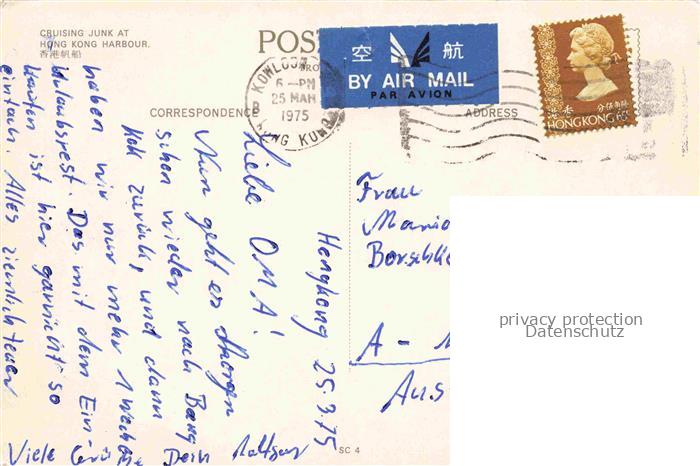 CRUISING JUNK AT
HONG KONG HARBOUR.
香港帆船
POST
KOWLOON
6-PM
25 MAR
1975
B
HONG KONG
空 航
BY AIR MAIL
PAR AVION
香港
HONG KONG
CORRESPONDENCE
ADDRESS
Hongkong 25.3.75
Liebe OMA!
Nun geht es Morgen
schon wieder nach Bang
kok zurück, und dann
haben wir nur mehr 1 Woche
Urlaubsrest. Das mit dem Ein-
kaufen ist hier garnicht so
einfach. Alles ziemlich teuer
Viele Grüße Dein
Frau
A -
Aus
SC 4
privacy protection
Datenschutz